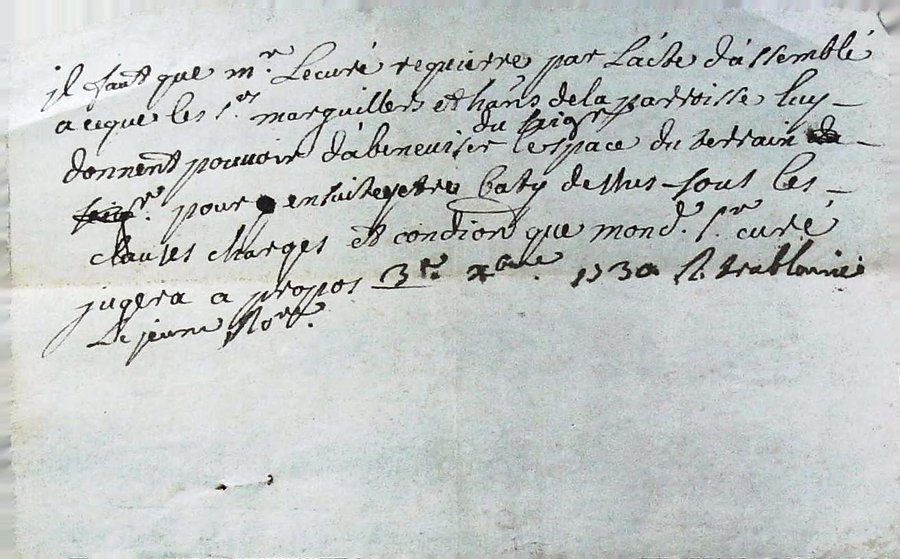 il faut que mr. Lecuré requierre par Lacte dassemblé
a ceque les srs marguilliers et hãns dela parroisse luy
donnent pouvoir dabeneviser du seigr lespace du terrain
seigr. pour ensuitte etre baty dessus sous les
clauses charges et condion que mond. sr curé
jugera a propos 3e. xbre. 1730
Le jeune Nore.